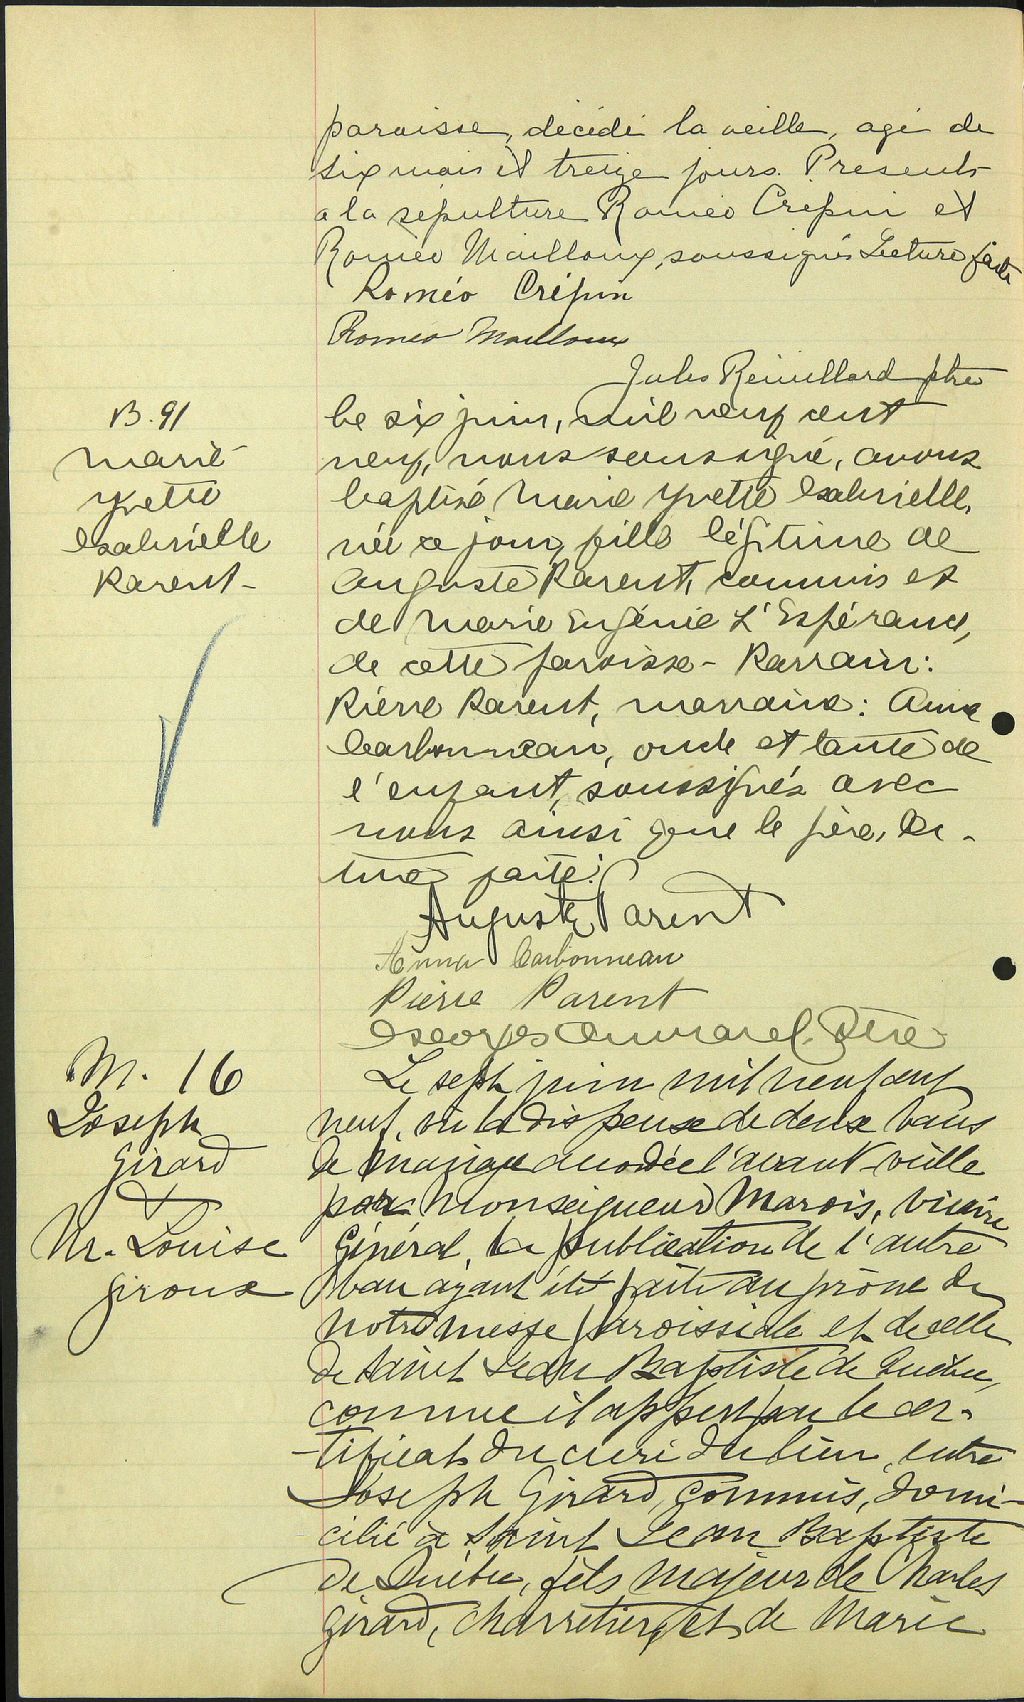 paroisse, décédé la veille, agé de
six mois et treize jours. Présents
a la sépulture Roméo Crépin et
Roméo Mailloux, soussignés Lecture faite
Roméo Crépin
Romeo Mailloux
Jules Remillard ptre
B. 91
Marie
Yvette
Gabrielle
Parent-
Le six juin, mil neuf cent
neuf, nous soussigné, avons
baptisé Marie Yvette Gabrielle,
née ce jour, fille légitime de
Auguste Parent, commis et
de Marie Eugénie L'Espérance,
de cette paroisse - Parrain:
Pierre Parent, marraine: Anna
Carbonneau, oncle et tante de
l'enfant, soussignés avec
nous ainsi que le père, lec-
ture faite.
Auguste Parent
Anna Carbonneau
Pierre Parent
Georges Ptre
M. 16
Joseph
Girard
&
M. Louise
Giroux
Le sept juin mil neuf cent
neuf, vu la dispense de deux bans
de mariage accordée l'avant-veille
par Monseigneur Marois, vicaire
Général, la publication de l'autre
ban ayant été faite au prône de
notre messe paroissiale et de celle
de Saint Jean Baptiste de Québec,
comme il appert par le cer-
-tificat du curé du lieu, entre
Joseph Girard, commis, domi-
cilié à Saint Jean Baptiste
de Québec, fils majeur de Charles
Girard, charretier, et de Marie